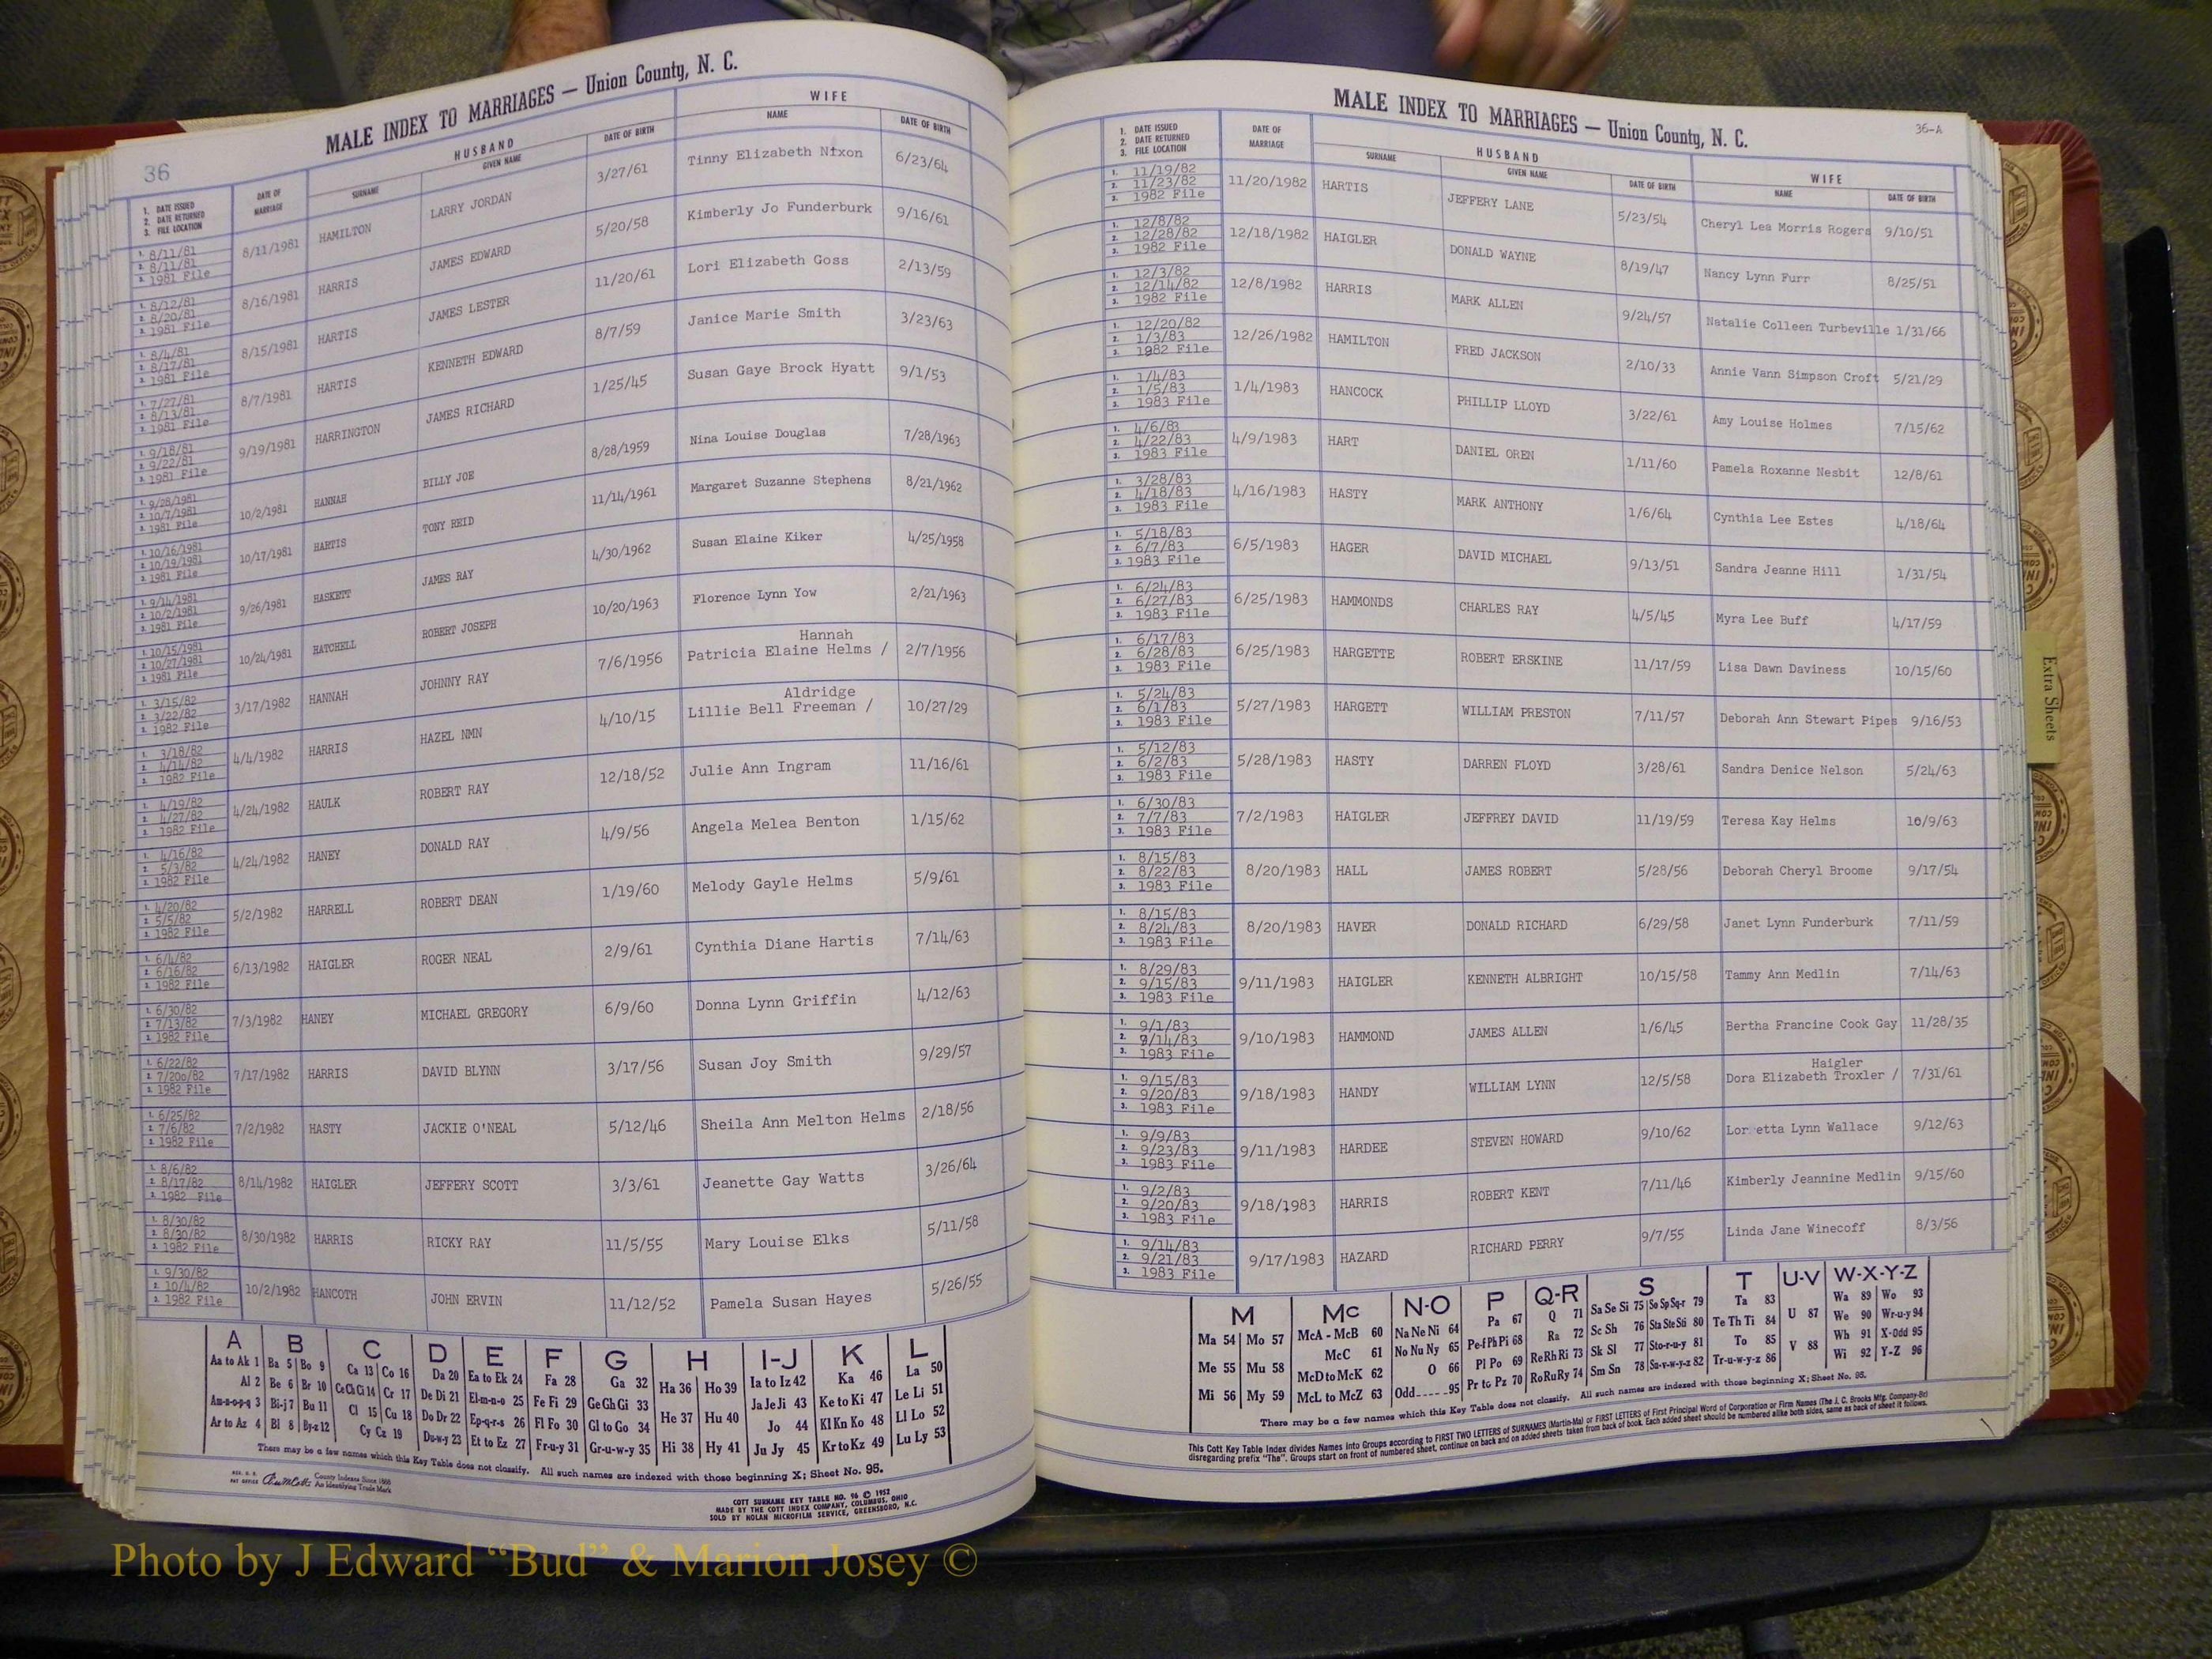 MALE INDEX TO MARRIAGES — Union County, N. C.
36
1. DATE ISSUED 2. DATE RETURNED 3. FILE LOCATION
DATE OF MARRIAGE
HUSBAND
SURNAME GIVEN NAME DATE OF BIRTH
WIFE
NAME DATE OF BIRTH
1. 8/11/81 2. 8/11/81 3. 1981 File 8/11/1981 HAMILTON LARRY JORDAN 3/27/61 Tinny Elizabeth Nixon 6/23/64
1. 8/12/81 2. 8/20/81 3. 1981 File 8/16/1981 HARRIS JAMES EDWARD 5/20/58 Kimberly Jo Funderburk 9/16/61
1. 8/4/81 2. 8/17/81 3. 1981 File 8/15/1981 HARTIS JAMES LESTER 11/20/61 Lori Elizabeth Goss 2/13/59
1. 7/27/81 2. 8/13/81 3. 1981 File 8/7/1981 HARTIS KENNETH EDWARD 8/7/59 Janice Marie Smith 3/23/63
1. 9/18/81 2. 9/22/81 3. 1981 File 9/19/1981 HARRINGTON JAMES RICHARD 1/25/45 Susan Gaye Brock Hyatt 9/1/53
1. 9/28/1981 2. 10/7/1981 3. 1981 File 10/2/1981 HANNAH BILLY JOE 8/28/1959 Nina Louise Douglas 7/28/1963
1. 10/16/1981 2. 10/19/1981 3. 1981 File 10/17/1981 HARTIS TONY REID 11/14/1961 Margaret Suzanne Stephens 8/21/1962
1. 9/14/1981 2. 10/2/1981 3. 1981 File 9/26/1981 HASKETT JAMES RAY 4/30/1962 Susan Elaine Kiker 4/25/1958
1. 10/15/1981 2. 10/27/1981 3. 1981 File 10/24/1981 HATCHELL ROBERT JOSEPH 10/20/1963 Florence Lynn Yow 2/21/1963
Hannah
1. 3/15/82 2. 3/22/82 3. 1982 File 3/17/1982 HANNAH JOHNNY RAY 7/6/1956 Patricia Elaine Helms / 2/7/1956
Aldridge
1. 3/18/82 2. 4/14/82 3. 1982 File 4/4/1982 HARRIS HAZEL NMN 4/10/15 Lillie Bell Freeman / 10/27/29
1. 4/19/82 2. 4/27/82 3. 1982 File 4/24/1982 HAULK ROBERT RAY 12/18/52 Julie Ann Ingram 11/16/61
1. 4/16/82 2. 5/3/82 3. 1982 File 4/24/1982 HANEY DONALD RAY 4/9/56 Angela Melea Benton 1/15/62
1. 4/20/82 2. 5/5/82 3. 1982 File 5/2/1982 HARRELL ROBERT DEAN 1/19/60 Melody Gayle Helms 5/9/61
1. 6/4/82 2. 6/16/82 3. 1982 File 6/13/1982 HAIGLER ROGER NEAL 2/9/61 Cynthia Diane Hartis 7/14/63
1. 6/30/82 2. 7/13/82 3. 1982 File 7/3/1982 HANEY MICHAEL GREGORY 6/9/60 Donna Lynn Griffin 4/12/63
1. 6/22/82 2. 7/20o/82 3. 1982 File 7/17/1982 HARRIS DAVID BLYNN 3/17/56 Susan Joy Smith 9/29/57
1. 6/25/82 2. 7/6/82 3. 1982 File 7/2/1982 HASTY JACKIE O'NEAL 5/12/46 Sheila Ann Melton Helms 2/18/56
1. 8/6/82 2. 8/17/82 3. 1982 File 8/14/1982 HAIGLER JEFFERY SCOTT 3/3/61 Jeanette Gay Watts 3/26/64
1. 8/30/82 2. 8/30/82 3. 1982 File 8/30/1982 HARRIS RICKY RAY 11/5/55 Mary Louise Elks 5/11/58
1. 9/30/82 2. 10/4/82 3. 1982 File 10/2/1982 HANCOTH JOHN ERVIN 11/12/52 Pamela Susan Hayes 5/26/55
A B C D E F G H I-J K L
Aa to Ak 1 Ba 5 Bo 9 Ca 13 Co 16 Da 20 Ea to Ek 24 Fa 28 Ga 32 Ha 36 Ho 39 Ia to Iz 42 Ka 46 La 50
Al 2 Be 6 Br 10 Ce Ch Ci 14 Cr 17 De Di 21 El-m-n-o 25 Fe Fi 29 Ge Gh Gi 33 He 37 Hu 40 Ja Je Ji 43 Ke to Ki 47 Le Li 51
Am-n-o-p-q 3 Bi-j 7 Bu 11 Cl 15 Cu 18 Do Dr 22 Ep-q-r-s 26 Fl Fo 30 Gl to Go 34 Hi 38 Hy 41 Jo 44 Kl Kn Ko 48 Ll Lo 52
Ar to Az 4 Bl 8 By-z 12 Cy Cz 19 Du-w-y 23 Et to Ez 27 Fr-u-y 31 Gr-u-w-y 35 Ju Jy 45 Kr to Kz 49 Lu Ly 53
There may be a few names which this Key Table does not classify. All such names are indexed with those beginning X; Sheet No. 95.
County Indexes Since 1888
An Identifying Trade Mark
COTT SURNAME KEY TABLE NO. 96 © 1952
MADE BY THE COTT INDEX COMPANY, COLUMBUS, OHIO
SOLD BY NOLAN MICROFILM SERVICE, GREENSBORO, N.C.
MALE INDEX TO MARRIAGES — Union County, N. C.
36-A
1. DATE ISSUED 2. DATE RETURNED 3. FILE LOCATION
DATE OF MARRIAGE
HUSBAND
SURNAME GIVEN NAME DATE OF BIRTH
WIFE
NAME DATE OF BIRTH
1. 11/19/82 2. 11/23/82 3. 1982 File 11/20/1982 HARTIS JEFFERY LANE 5/23/54 Cheryl Lea Morris Rogers 9/10/51
1. 12/8/82 2. 12/28/82 3. 1982 File 12/18/1982 HAIGLER DONALD WAYNE 8/19/47 Nancy Lynn Furr 8/25/51
1. 12/3/82 2. 12/14/82 3. 1982 File 12/8/1982 HARRIS MARK ALLEN 9/24/57 Natalie Colleen Turbeville 1/31/66
1. 12/20/82 2. 1/3/83 3. 1982 File 12/26/1982 HAMILTON FRED JACKSON 2/10/33 Annie Vann Simpson Croft 5/21/29
1. 1/4/83 2. 1/5/83 3. 1983 File 1/4/1983 HANCOCK PHILLIP LLOYD 3/22/61 Amy Louise Holmes 7/15/62
1. 4/6/83 2. 4/22/83 3. 1983 File 4/9/1983 HART DANIEL OREN 1/11/60 Pamela Roxanne Nesbit 12/8/61
1. 3/28/83 2. 4/18/83 3. 1983 File 4/16/1983 HASTY MARK ANTHONY 1/6/64 Cynthia Lee Estes 4/18/64
1. 5/18/83 2. 6/7/83 3. 1983 File 6/5/1983 HAGER DAVID MICHAEL 9/13/51 Sandra Jeanne Hill 1/31/54
1. 6/24/83 2. 6/27/83 3. 1983 File 6/25/1983 HAMMONDS CHARLES RAY 4/5/45 Myra Lee Buff 4/17/59
1. 6/17/83 2. 6/28/83 3. 1983 File 6/25/1983 HARGETTE ROBERT ERSKINE 11/17/59 Lisa Dawn Daviness 10/15/60
1. 5/24/83 2. 6/1/83 3. 1983 File 5/27/1983 HARGETT WILLIAM PRESTON 7/11/57 Deborah Ann Stewart Pipes 9/16/53
1. 5/12/83 2. 6/2/83 3. 1983 File 5/28/1983 HASTY DARREN FLOYD 3/28/61 Sandra Denice Nelson 5/24/63
1. 6/30/83 2. 7/7/83 3. 1983 File 7/2/1983 HAIGLER JEFFREY DAVID 11/19/59 Teresa Kay Helms 10/9/63
1. 8/15/83 2. 8/22/83 3. 1983 File 8/20/1983 HALL JAMES ROBERT 5/28/56 Deborah Cheryl Broome 9/17/54
1. 8/15/83 2. 8/24/83 3. 1983 File 8/20/1983 HAVER DONALD RICHARD 6/29/58 Janet Lynn Funderburk 7/11/59
1. 8/29/83 2. 9/15/83 3. 1983 File 9/11/1983 HAIGLER KENNETH ALBRIGHT 10/15/58 Tammy Ann Medlin 7/14/63
1. 9/1/83 2. 9/14/83 3. 1983 File 9/10/1983 HAMMOND JAMES ALLEN 1/6/45 Bertha Francine Cook Gay 11/28/35
Haigler
1. 9/15/83 2. 9/20/83 3. 1983 File 9/18/1983 HANDY WILLIAM LYNN 12/5/58 Dora Elizabeth Troxler / 7/31/61
1. 9/9/83 2. 9/23/83 3. 1983 File 9/11/1983 HARDEE STEVEN HOWARD 9/10/62 Lor etta Lynn Wallace 9/12/63
1. 9/2/83 2. 9/20/83 3. 1983 File 9/18/1983 HARRIS ROBERT KENT 7/11/46 Kimberly Jeannine Medlin 9/15/60
1. 9/14/83 2. 9/21/83 3. 1983 File 9/17/1983 HAZARD RICHARD PERRY 9/7/55 Linda Jane Winecoff 8/3/56
M Mc N-O P Q-R S T U-V W-X-Y-Z
Ma 54 Mo 57 McA - McB 60 Na Ne Ni 64 Pa 67 Q 71 Sa Se Si 75 So Sp Sq-r 79 Ta 83 U 87 Wa 89 Wo 93
Me 55 Mu 58 McC 61 No Nu Ny 65 Pe-f Ph Pi 68 Ra 72 Sc Sh 76 Sta Ste Sti 80 Te Th Ti 84 V 88 We 90 Wr-u-y 94
Mi 56 My 59 McD to McK 62 O 66 Pl Po 69 Re Rh Ri 73 Sk Sl 77 Sto-r-u-y 81 To 85 Wh 91 X-Odd 95
McL to McZ 63 Odd 95 Pr to Pz 70 Ro Ru Ry 74 Sm Sn 78 Su-v-w-y-z 82 Tr-u-w-y-z 86 Wi 92 Y-Z 96
There may be a few names which this Key Table does not classify. All such names are indexed with those beginning X; Sheet No. 95.
This Cott Key Table Index divides Names into Groups according to FIRST TWO LETTERS of SURNAMES (Martin-Ma) or FIRST LETTERS of First Principal Word of Corporation or Firm Names (The J. C. Brooks Mfg. Company-Br)
disregarding prefix "The". Groups start on front of numbered sheet, continue on back and on added sheets taken from back of book. Each added sheet should be numbered alike both sides, same as back of sheet it follows.
Extra Sheets
Photo by J Edward "Bud" & Marion Josey ©